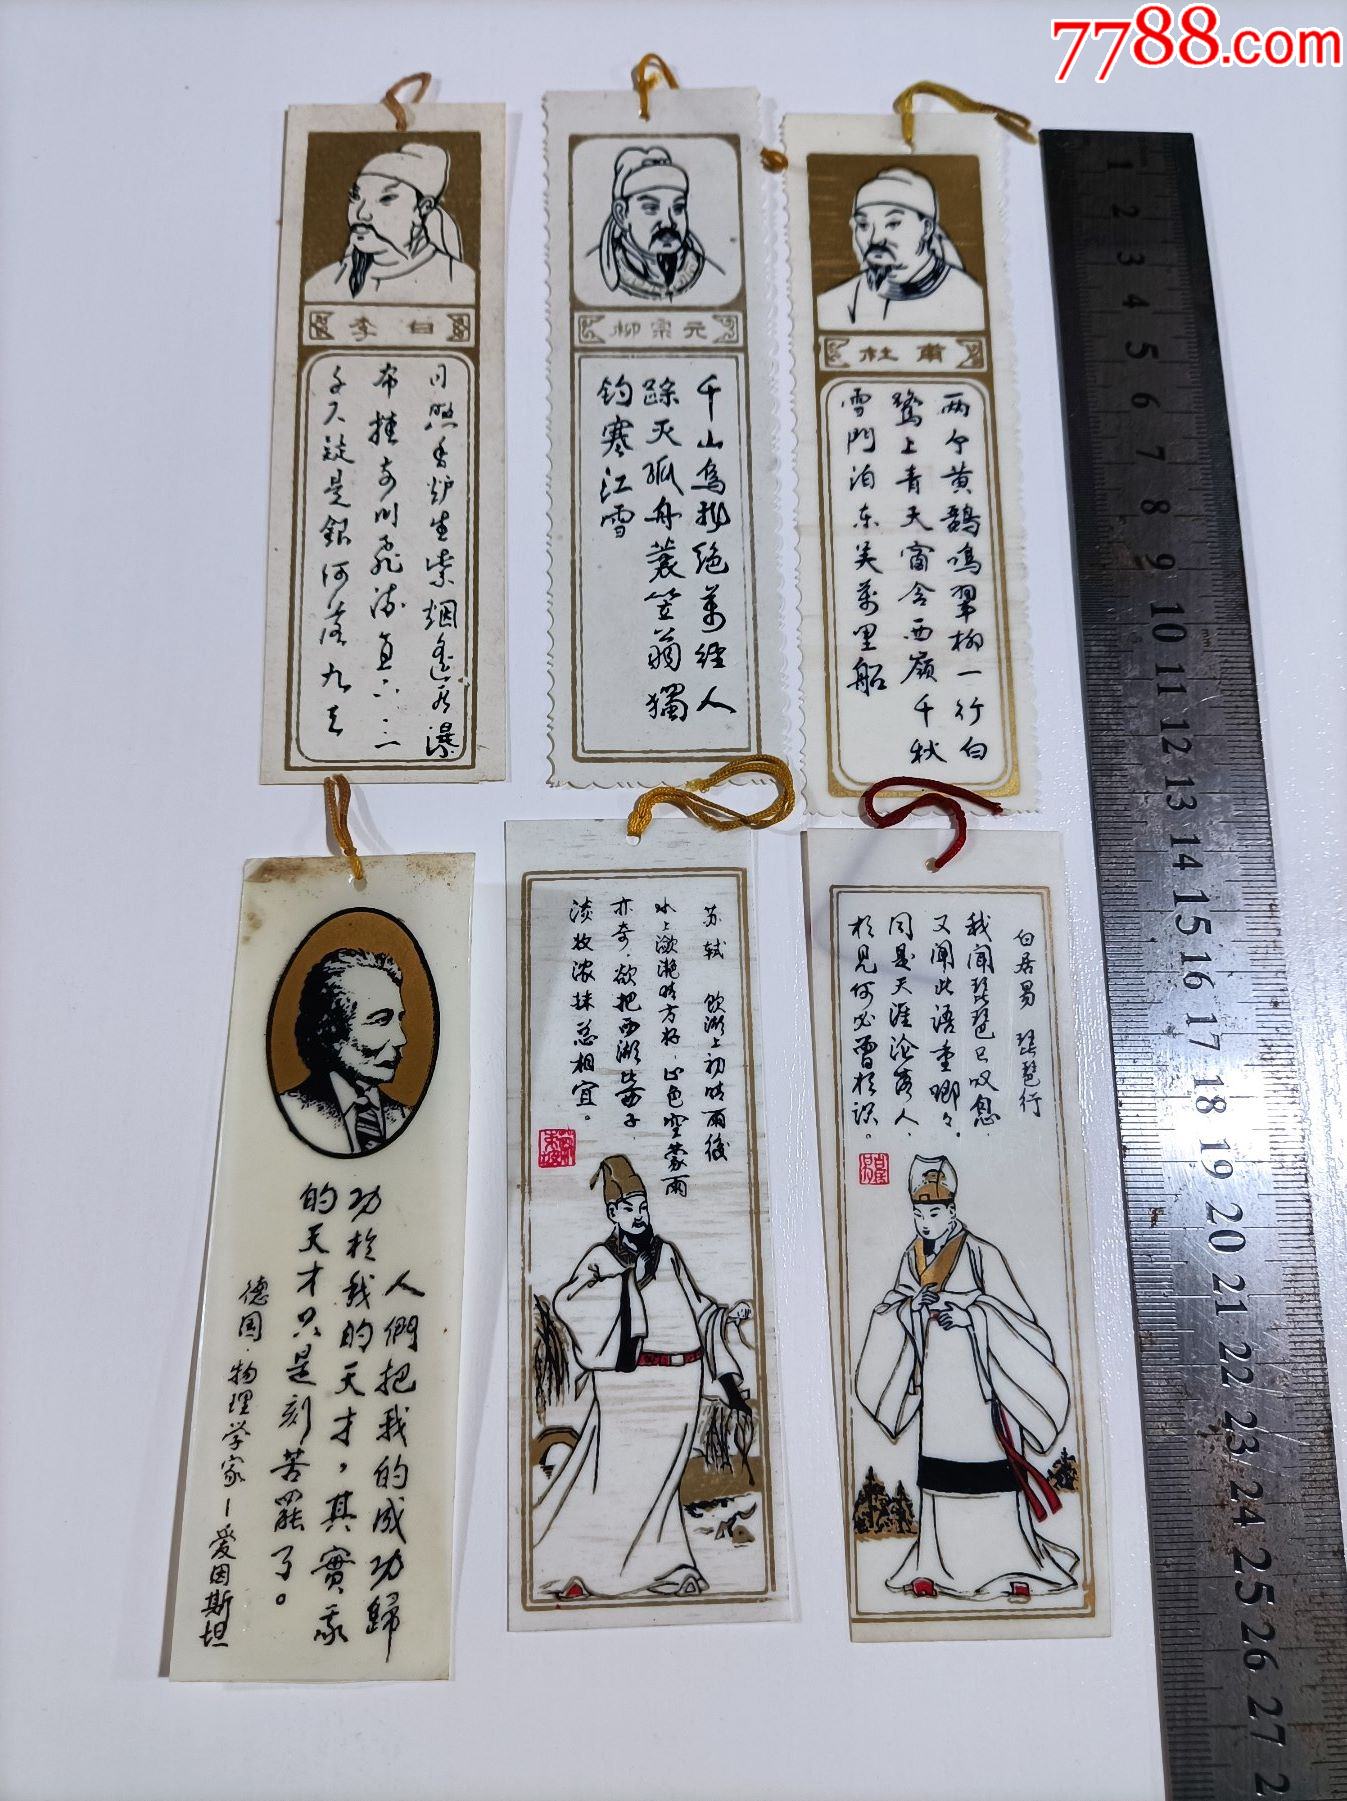 7788.com
李白
日照香炉生紫烟遥看瀑
布挂前川飞流直下三
千尺疑是銀河落九天
柳宗元
千山鸟飛绝萬径人
踪灭孤舟蓑笠翁獨
钓寒江雪
杜甫
两个黄鹂鸣翠柳一行白
鹭上青天窗含西嶺千秋
雪門泊东吴萬里船
人們把我的成功歸
功於我的天才，其實我
的天才只是刻苦罷了。
德国·物理学家—爱因斯坦
苏轼 飲湖上初晴雨後
水上潋滟晴方好，山色空蒙雨
亦奇，欲把西湖比西子
淡妆浓抹总相宜。
白居易 琵琶行
我闻琵琶已叹息，
又闻此语重唧々。
同是天涯沦落人，
相見何必曾相识。
1 2 3 4 5 6 7 8 9 10 11 12 13 14 15 16 17 18 19 20 21 22 23 24 25 26 27 2